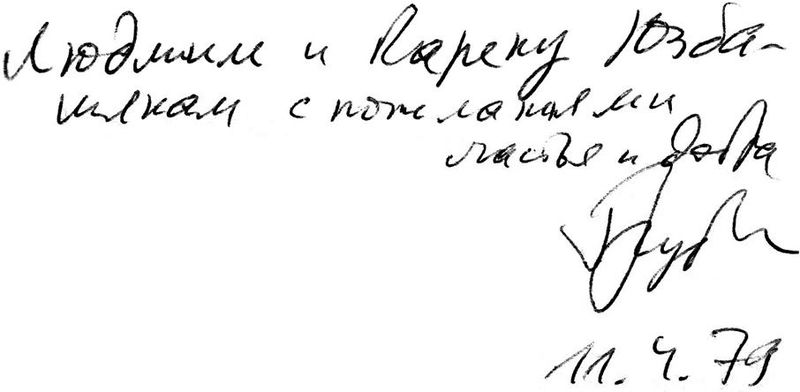 Людмиле и Карену Юзба-
шянам с пожеланиями
счастья и добра
11.4.79